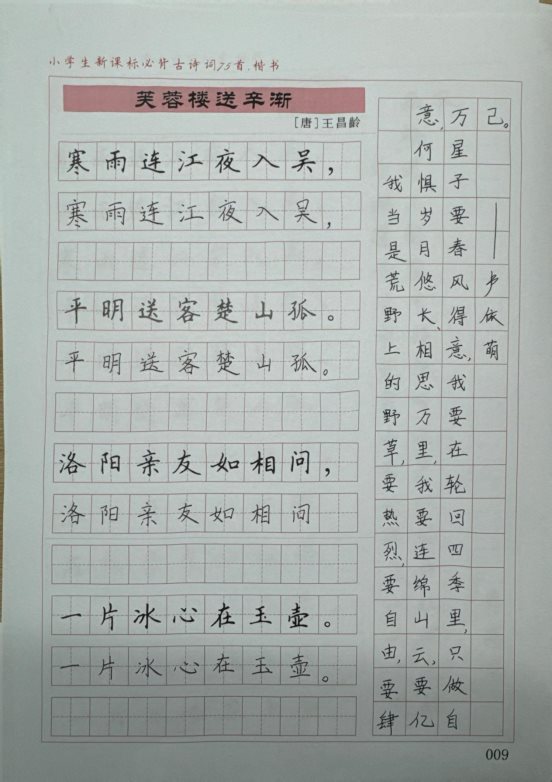 小学生新课标必背古诗词75首.楷书
芙蓉楼送辛渐
[唐]王昌龄
寒雨连江夜入吴，
寒雨连江夜入吴，
平明送客楚山孤。
平明送客楚山孤。
洛阳亲友如相问，
洛阳亲友如相问
一片冰心在玉壶。
一片冰心在玉壶。
我当是荒野上的野草,要热烈,要自由,要肆
意,何惧岁月悠长、相思万里,我要连绵山云,要亿
万星子要春风得意,我要在轮回四季里,只做自
己。——依萌
009